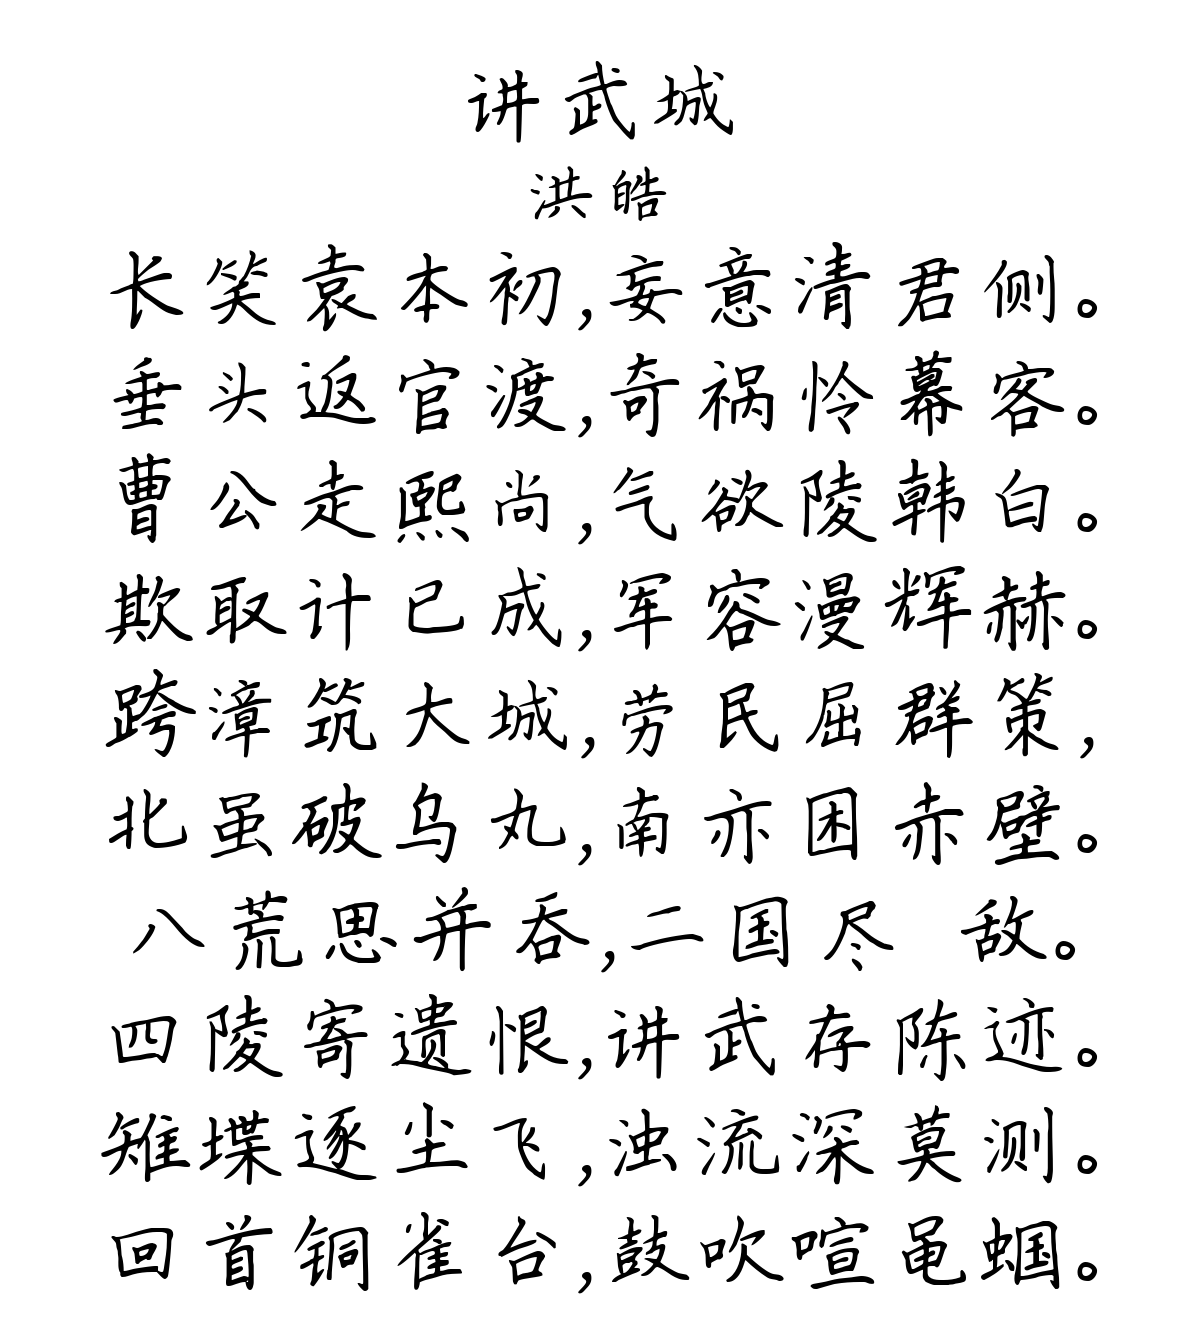 讲武城
洪皓
长笑袁本初,妄意清君侧。
垂头返官渡,奇祸怜幕客。
曹公走熙尚,气欲陵韩白。
欺取计已成,军容漫辉赫。
跨漳筑大城,劳民屈群策,
北虽破乌丸,南亦困赤壁。
八荒思并吞,二国尽 敌。
四陵寄遗恨,讲武存陈迹。
雉堞逐尘飞,浊流深莫测。
回首铜雀台,鼓吹喧黾蝈。